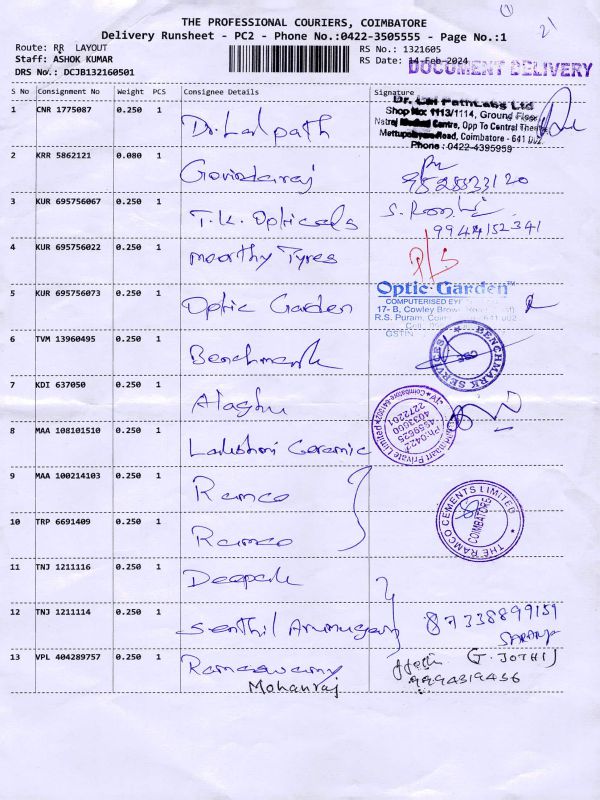 1
21
THE PROFESSIONAL COURIERS, COIMBATORE
Delivery Runsheet - PC2 - Phone No.:0422-3505555 - Page No.:1
Route: RR LAYOUT
Staff: ASHOK KUMAR
DRS No.: DCJB132160501
RS No.: 1321605
RS Date: 14-Feb-2024
DOCUMENT DELIVERY
S No Consignment No Weight PCS Consignee Details Signature
1 CNR 1775087 0.250 1 Dr. Lal path
Dr. Lal PathLabs Ltd
Shop No: 1113/1114, Ground Floor,
Centre, Opp To Central Theatre
Road, Coimbatore - 641 002.
Phone : 0422-4395959
2 KRR 5862121 0.080 1 Govindaraj
3 KUR 695756067 0.250 1 T.K. Opticals
9944152341
4 KUR 695756022 0.250 1 moorthy Tyres
P/S
5 KUR 695756073 0.250 1 Optic Garden
Optic Garden
COMPUTERISED
17- B, Cowley Brown
R.S. Puram, 641 002
GSTIN
6 TVM 13960495 0.250 1 Benchmark
BENCHMARK SERVICES
CBE
7 KDI 637050 0.250 1 Alaghu
8 MAA 108101510 0.250 1 Lakshmi Ceramic
Private Limited
Ph:0422
4559625
4033600
2272201
9 MAA 100214103 0.250 1 Ramco
THE RAMCO CEMENTS LIMITED
COIMBATORE
10 TRP 6691409 0.250 1 Ramco
11 TNJ 1211116 0.250 1 Deepak
12 TNJ 1211114 0.250 1 Senthil Arumugam
87338899159
13 VPL 404289757 0.250 1 Rameswamy
G. JOTHIJ
Mohanraj
9994319456